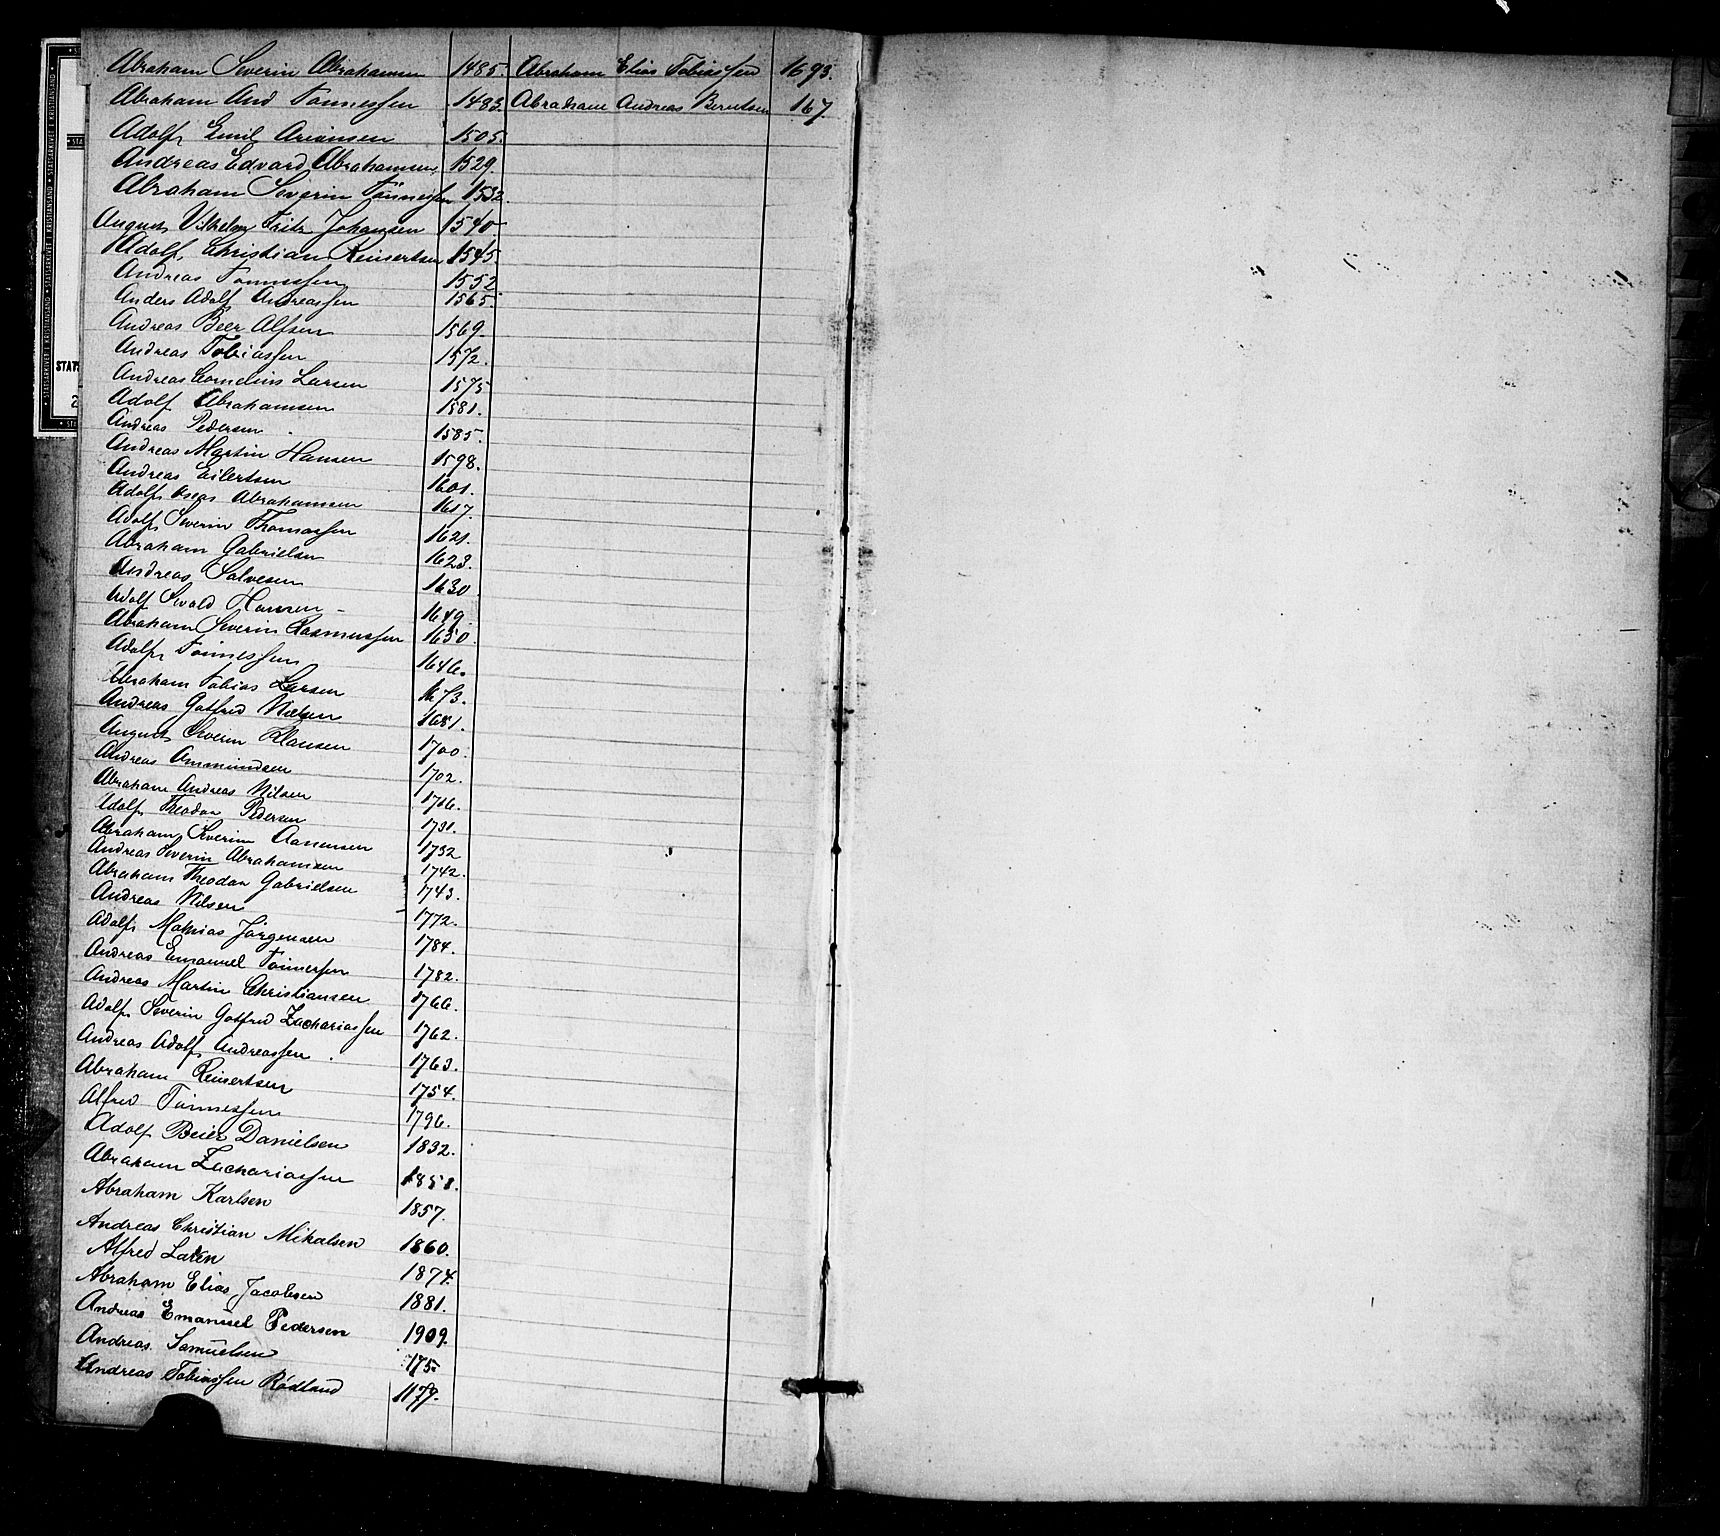 Abraham Severin Abrahamsen 1485. Abraham Elias Tobiassen 1693.
Abraham And Tønnessen 1483. Abraham Andreas Berntsen 167
Adolf Emil Ariansen 1505.
Andreas Edvard Abrahamsen 1529.
Abraham Severin Tönnessen 1532.
August Vilhelm Fritz Johansen 1540.
Adolf Christian Reinertsen 1545.
Andreas Tønnessen 1552
Anders Adolf Andreassen 1565.
Andreas Beer Alfsen 1569.
Andreas Tobiassen 1572.
Andreas Cornelius Larsen 1575
Adolf Abrahamsen 1581.
Andreas Pedersen 1585.
Andreas Martin Hansen 1598.
Andreas Eilertsen 1601.
Adolf Oseas Abrahamsen 1617.
Adolf Severin Thomassen 1621.
Abraham Gabrielsen 1623.
Andreas Salvesen 1630.
Adolf Sevald Hansen 1649.
Abraham Severin Rasmussen 1650.
Adolf Tönnessen 1646.
Abraham Tobias Larsen 1673.
Andreas Gotfred Nielsen 1681.
August Severin Klausen 1700.
Andreas Ommundsen 1702.
Abraham Andreas Nilsen 1716.
Adolf Theodor Pedersen 1731.
Abraham Severin Aanensen 1732
Andreas Severin Abrahamsen 1742.
Abraham Theodor Gabrielsen 1743.
Andreas Nilsen 1772.
Adolf Mathias Jørgensen 1784.
Andreas Emanuel Tønnessen 1782.
Andreas Martin Christiansen 1766.
Adolf Severin Gotfred Zachariassen 1762.
Andreas Adolf Andreassen 1763.
Abraham Reinertsen 1754.
Alfred Tönnessen 1796.
Adolf Beier Danielsen 1832.
Abraham Zachariassen 1851.
Abraham Karlsen 1857.
Andreas Christian Mikalsen 1860.
Alfred Larsen 1874.
Abraham Elias Jacobsen 1881.
Andreas Emanuel Pedersen 1909.
Andreas Samuelsen 775.
Andreas Tobiassen Rödland 1179.
STATSARKIVET I KRISTIANSAND
STATS
2